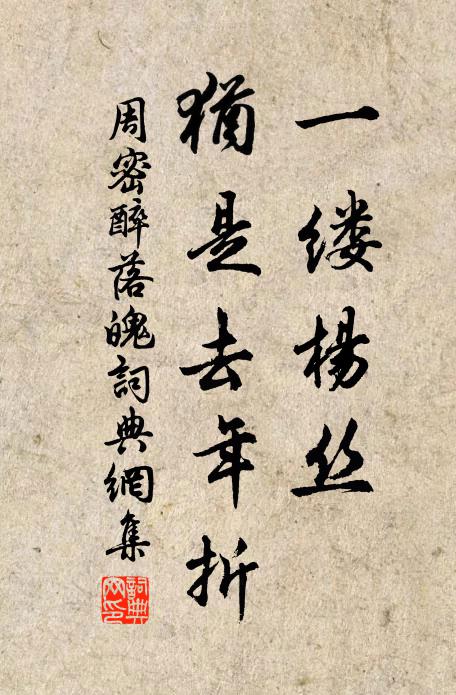 一缕楊丝
猶是去年折
周密醉落魄詞典網集
詞典
网印